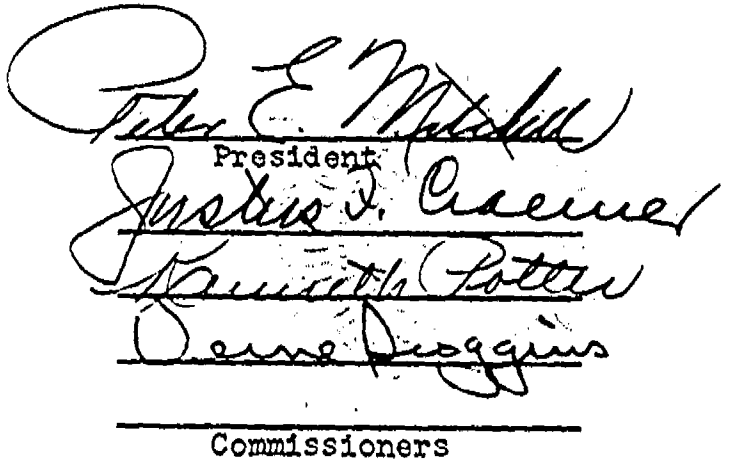 Peter E. Mitchell
President
Justus F. Craemer
Kenneth Potter
Verne Scoggins
Commissioners